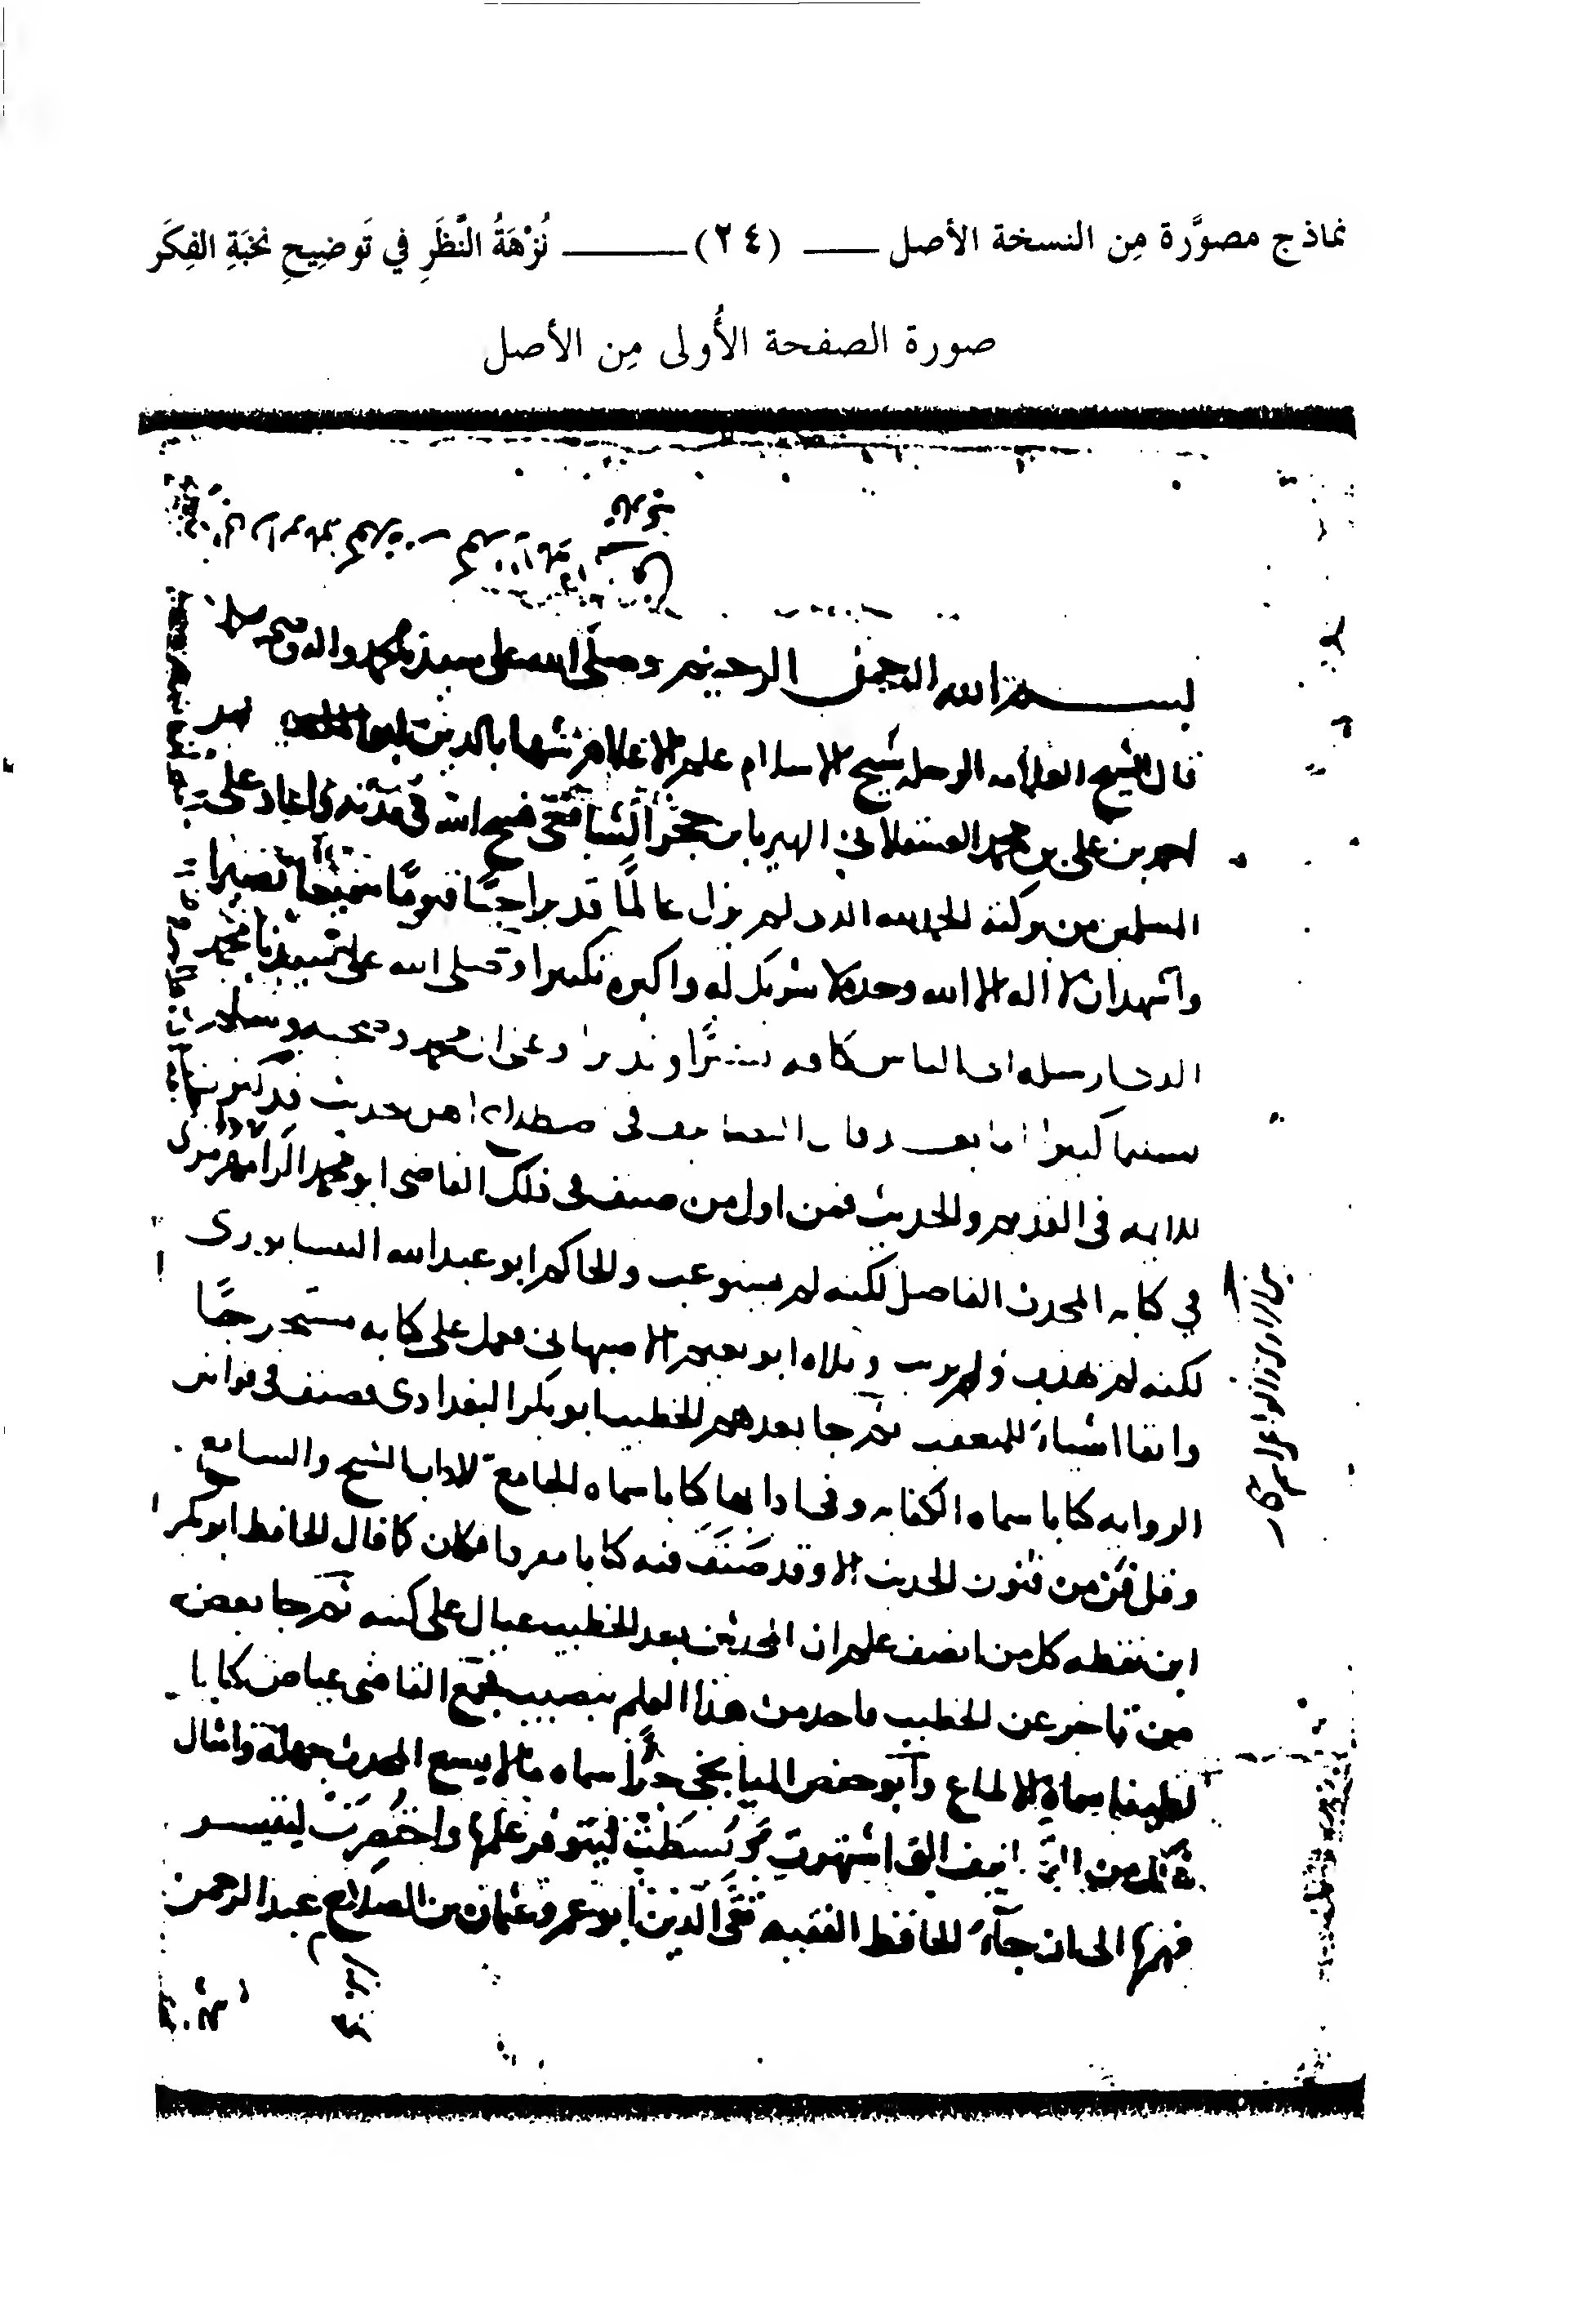 نماذج مصوَّرة مِن النسخة الأصل ــــ (٢٤) ــــ نُزْهَةُ النَّظَرِ في تَوضِيحِ نخبَةِ الفِكَر
صورة الصفحة الأُولى مِن الأصل
بسم الله الرحمن الرحيم وصلى الله على سيدنا محمد واله وصحبه وسلم
قال الشيخ العلامه الرحله شيخ الاسلام علم الاعلام شهاب الدين ابو الفضل
احمد بن على بن محمد العسقلاني الشهير بابن حجر الشافعى فسح الله في مدته واعاد على
المسلمين من بركته الحمد لله الذى لم يزل عالمًا قديرا حيًا قيومًا سميعًا بصيرا
واشهد ان لا اله الا الله وحده لا شريك له واكبره تكبيرا وصلى الله على سيدنا محمد
الذى ارسله الى الناس كافه بشيرًا ونذيرا وعلى ال محمد وصحبه وسلم
تسليما كثيرا اما بعد فان التصانيف فى اصطلاح اهل حديث قد كثرت
للايمه فى القديم والحديث فمن اول من صنف فى ذلك القاضى ابو محمد الرامهرمزى
في كتابه المحدث الفاصل لكنه لم يستوعب والحاكم ابو عبد الله النيسابورى
لكنه لم يهذب ولم يرتب وتلاه ابو نعيم الاصبهانى فعمل على كتابه مستخرجًا
وابقا اشياءَ للمتعقب ثم جا بعدهم الخطيب ابو بكر البغدادى فصنف فى قوانين
الروايه كتابا سماه الكفايه وفى ادابها كتابا سماه الجامع لاداب الشيخ والسامع
وقل فن من فنون الحديث الا وقد صَنَّفَ فيه كتابا مفردا فكان كما قال الحافظ ابو بكر
ابن نقطه كل من انصف علم ان المحدثين بعد الخطيب عيال على كتبه ثم جا بعض
من تاخر عن الخطيب فاخذ من هذا العلم بنصيب فجمع القاضى عياض كتابا
لطيفا سماه الالماع وأبو حفص الميانجى جزأ سماه ما لا يسع المحدث جهله وامثال
ذلك من التصانيف التى اشتهرت وبُسِطَتْ ليتوفر علمها واختُصِرَتْ ليتيسر
فهمها الى ان جآءَ الحافظ الفقيه تقىُّ الدين ابو عمرو عثمان بن الصلاح عبد الرحمن